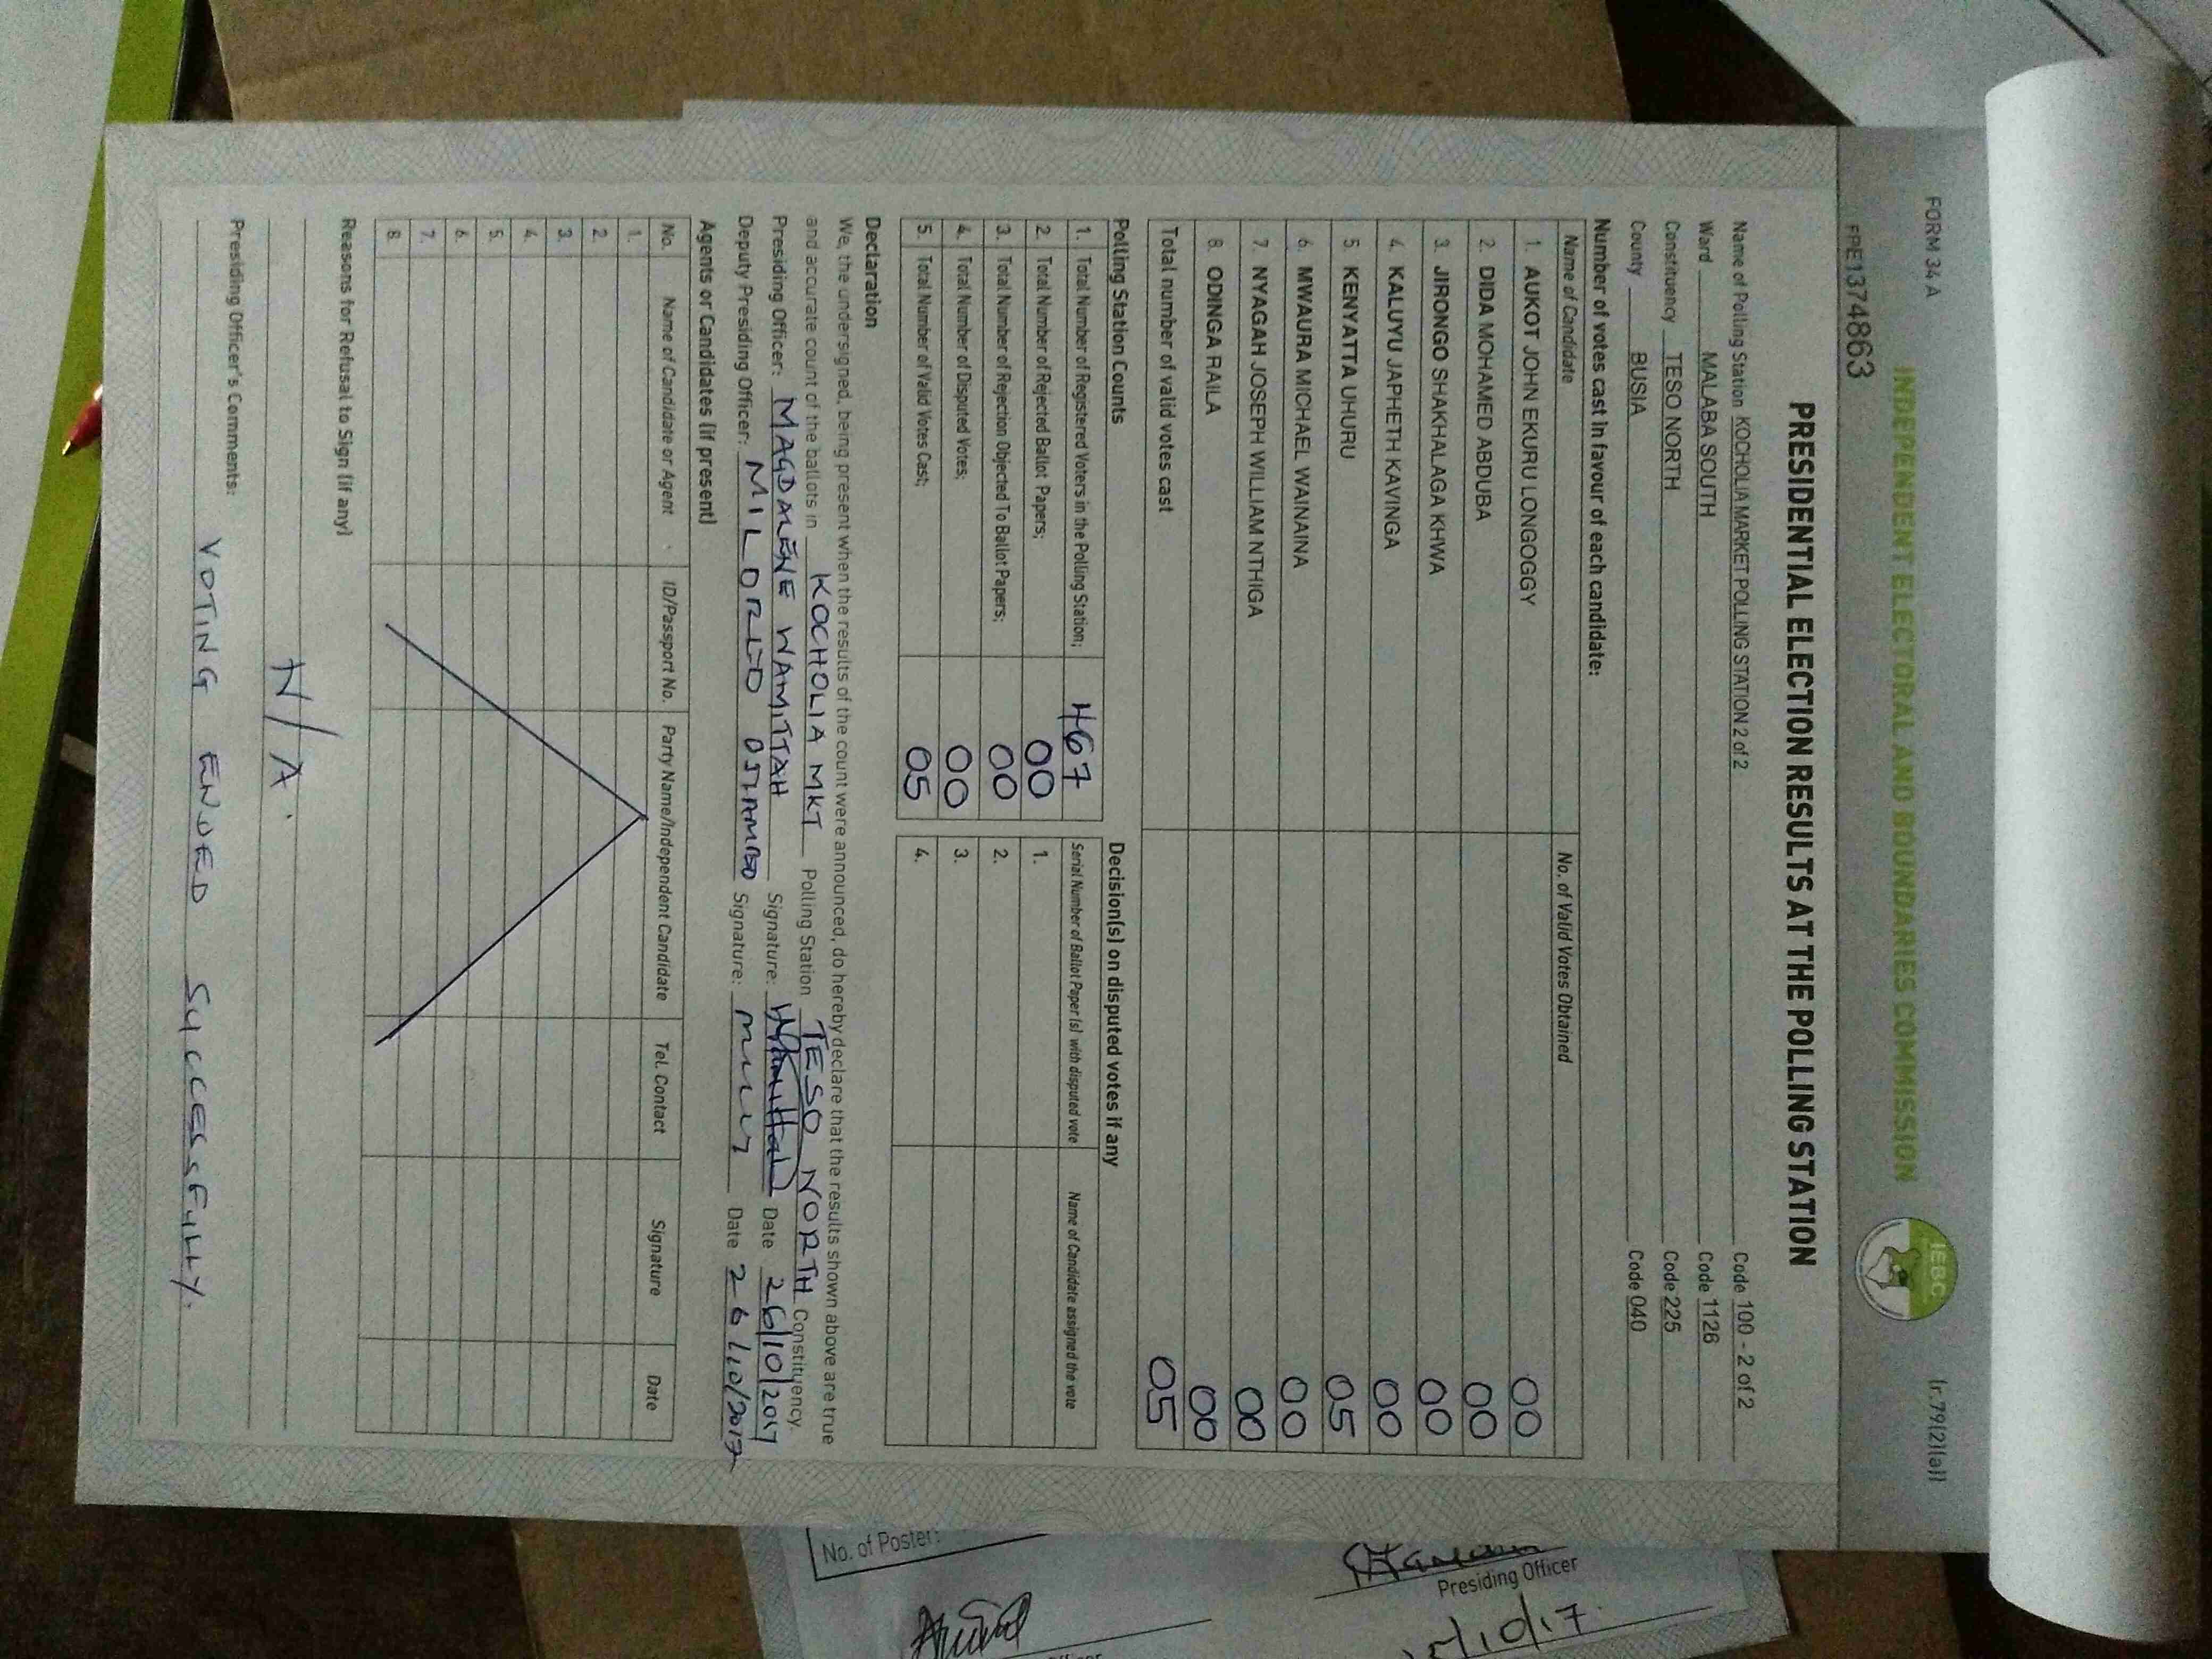 FORM 34 A
(r.79(2)(a))
INDEPENDENT ELECTORAL AND BOUNDARIES COMMISSION
IEBC
FPE1374863
PRESIDENTIAL ELECTION RESULTS AT THE POLLING STATION
Name of Polling Station KOCHOLIA MARKET POLLING STATION 2 of 2 Code 100 - 2 of 2
Ward MALABA SOUTH Code 1126
Constituency TESO NORTH Code 225
County BUSIA Code 040
Number of votes cast in favour of each candidate:
Name of Candidate No. of Valid Votes Obtained
1. AUKOT JOHN EKURU LONGOGGY 00
2. DIDA MOHAMED ABDUBA 00
3. JIRONGO SHAKHALAGA KHWA 00
4. KALUYU JAPHETH KAVINGA 00
5. KENYATTA UHURU 05
6. MWAURA MICHAEL WAINAINA 00
7. NYAGAH JOSEPH WILLIAM NTHIGA 00
8. ODINGA RAILA 00
Total number of valid votes cast 05
Polling Station Counts
1. Total Number of Registered Voters in the Polling Station; 467
2. Total Number of Rejected Ballot Papers; 00
3. Total Number of Rejection Objected To Ballot Papers; 00
4. Total Number of Disputed Votes; 00
5. Total Number of Valid Votes Cast; 05
Decision(s) on disputed votes if any
Serial Number of Ballot Paper (s) with disputed vote Name of Candidate assigned the vote
1.
2.
3.
4.
Declaration
We, the undersigned, being present when the results of the count were announced, do hereby declare that the results shown above are true
and accurate count of the ballots in KOCHOLIA MKT Polling Station TESO NORTH Constituency.
Presiding Officer: MAGDALENE WAMITTAH Signature: Date 26/10/2017
Deputy Presiding Officer: Signature: Date 26/10/2017
Agents or Candidates (if present)
No. Name of Candidate or Agent ID/Passport No. Party Name/Independent Candidate Tel. Contact Signature Date
1.
2.
3.
4.
5.
6.
7.
8.
Reasons for Refusal to Sign (if any)
N/A.
Presiding Officer's Comments:
VOTING ENDED SUCCESSFULLY.
No. of Poster:
Presiding Officer
/10/17.